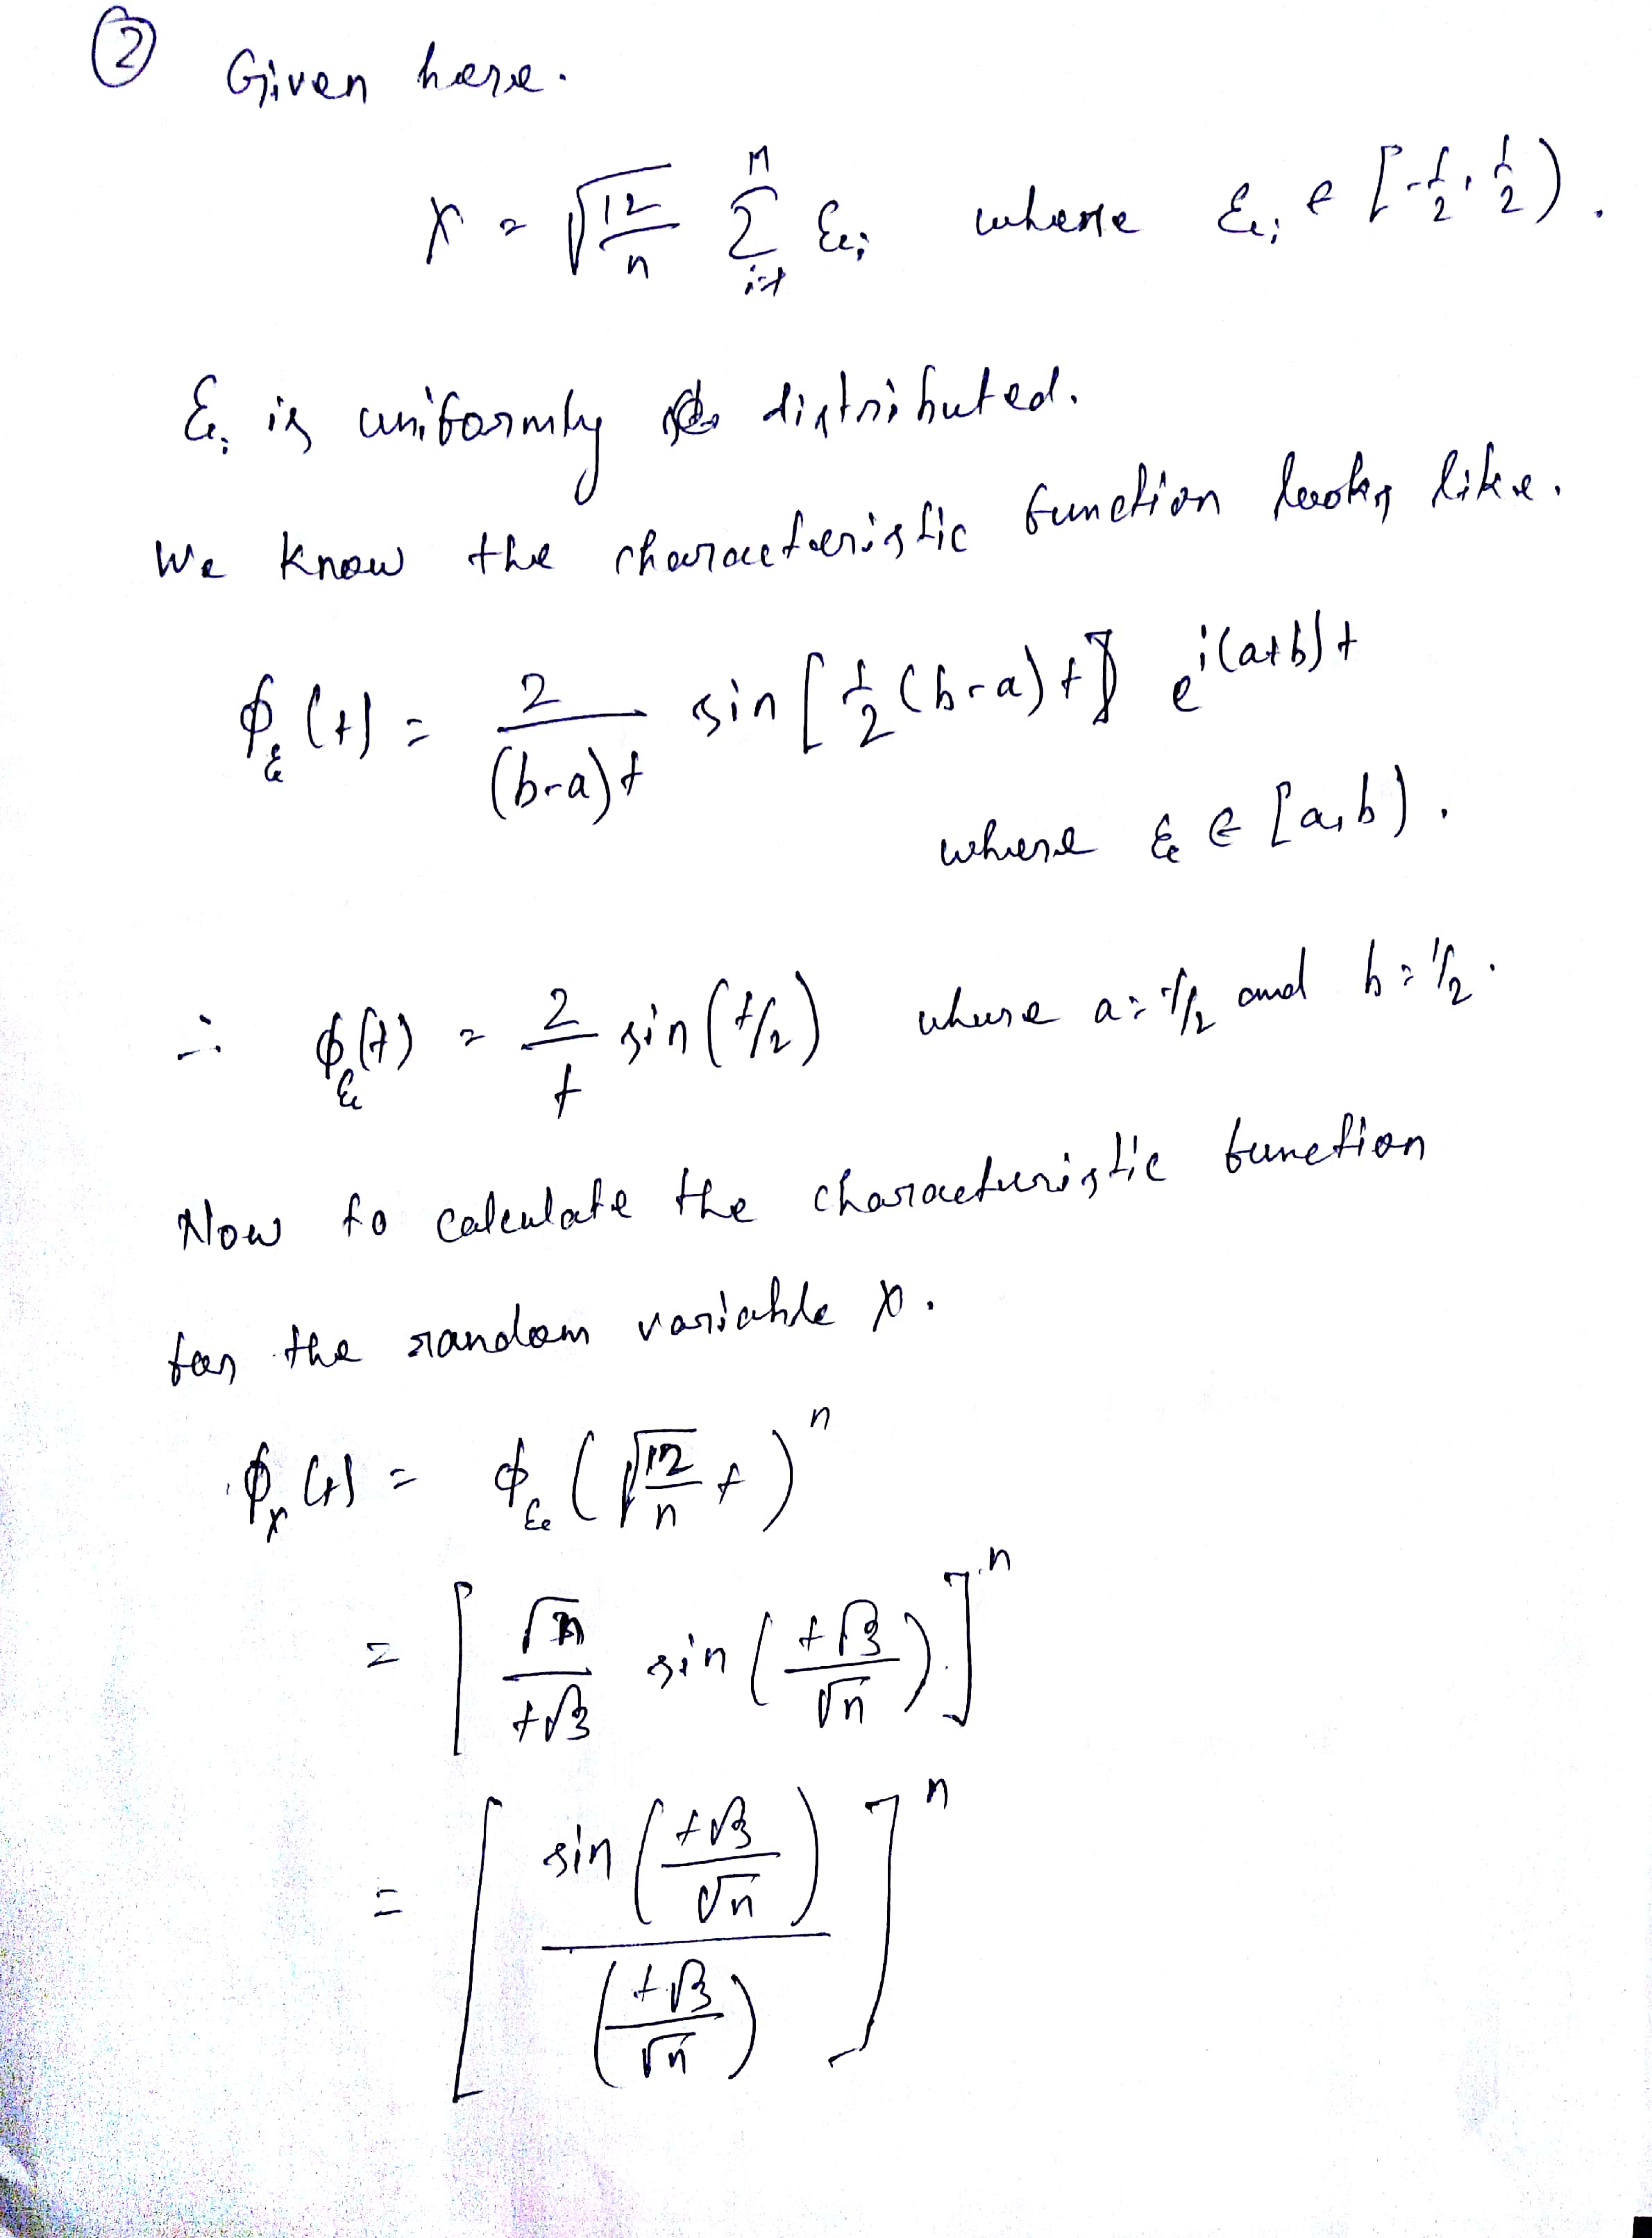 ② Given here.
X = √(12/n) Σ_{i=1}^{n} ξ_i where ξ_i ∈ [-1/2, 1/2).
ξ_i is uniformly distributed.
We know the characteristic function looks like.
ϕ_ξ(t) = 2/((b-a)t) sin[1/2 (b-a)t] e^{i(a+b)t}
where ξ ∈ [a,b).
∴ ϕ_ξ(t) = 2/t sin(t/2) where a = -1/2 and b = 1/2.
Now to calculate the characteristic function
for the random variable X.
ϕ_X(t) = ϕ_ξ(√(12/n) t)^n
= [√n/(t√3) sin(t√3/√n)]^n
= [sin(t√3/√n) / (t√3/√n)]^n